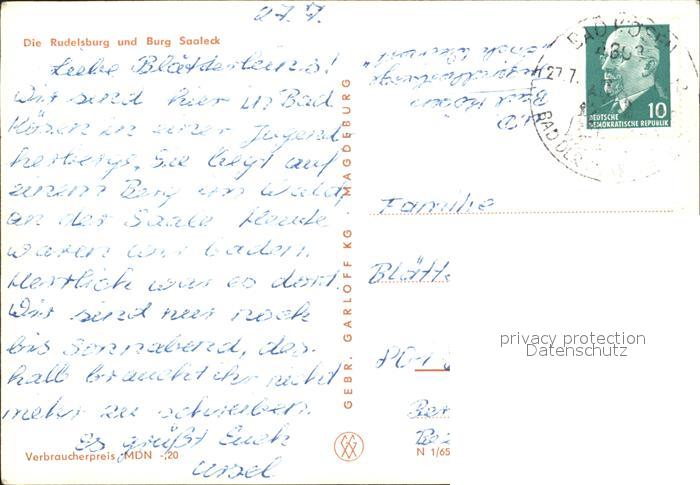 27. 7.
Die Rudelsburg und Burg Saaleck
Liebe Blätterleins!
Wir sind hier in Bad
Kösen in einer Jugend
herberge. Sie liegt auf
einem Berg im Wald
an der Saale. Heute
waren wir baden.
Herrlich war es dort.
Wir sind nur noch
bis Sonnabend, des-
halb braucht ihr nicht
mehr zu schreiben.
Es grüßt Euch
Ursel
Verbraucherpreis MDN -,20
GEBR. GARLOFF KG · MAGDEBURG
N 1/65
Jugendherberge
Bad Kösen
BAD KÖSEN
4803
27.7.
10
DEUTSCHE
DEMOKRATISCHE REPUBLIK
Familie
Blätt
privacy protection
Datenschutz